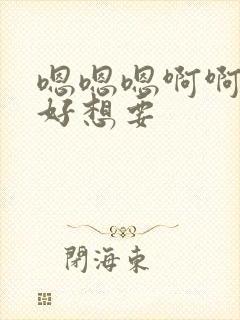 嗯嗯嗯啊啊
好想要
閉海東